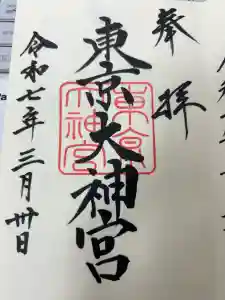 奉拝
東京大神宮
東京大神宮
令和七年三月卅日